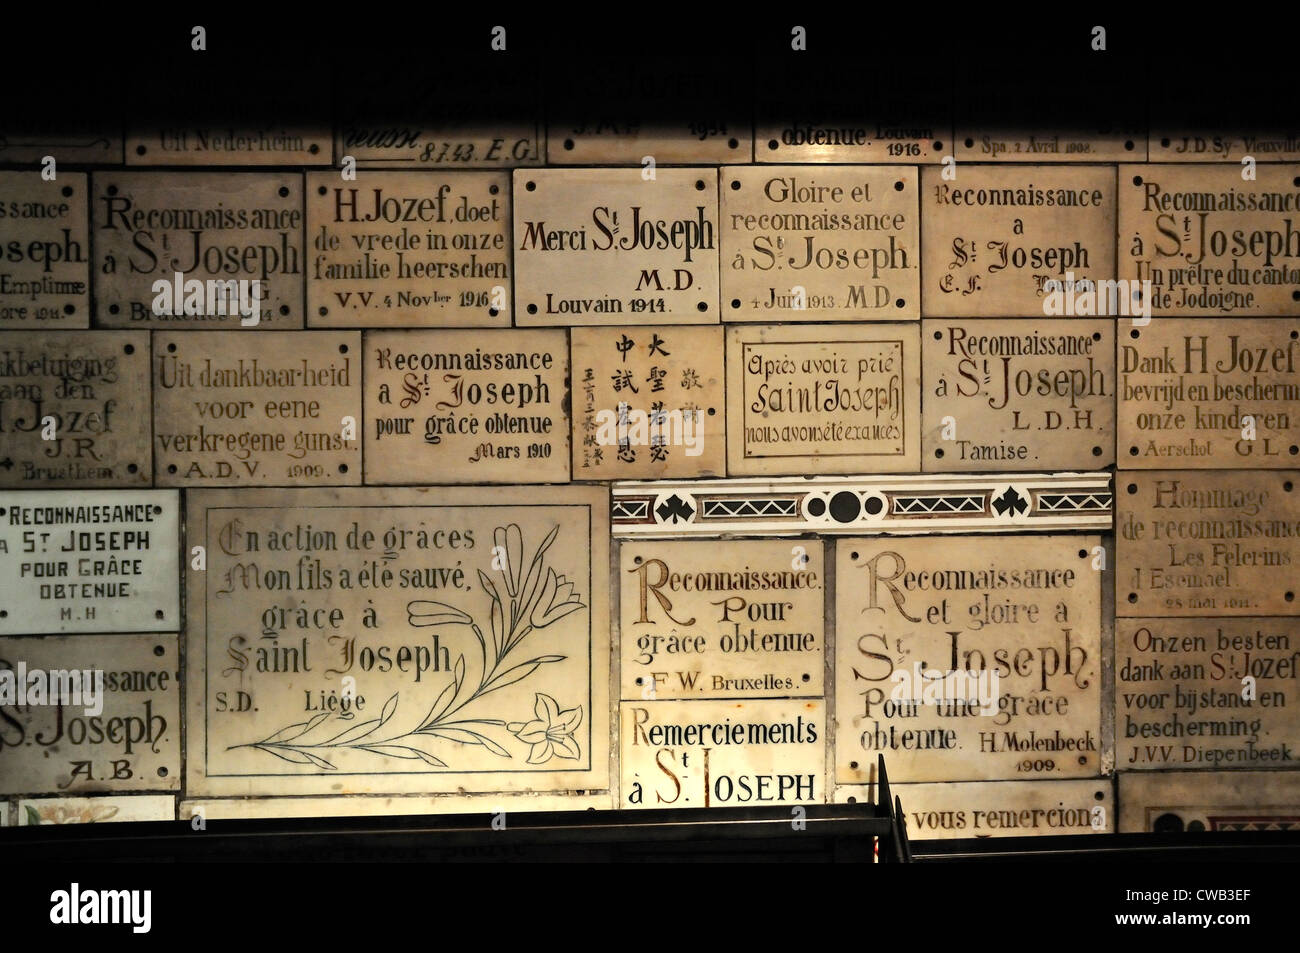 Uit Nederheim.
8.7.43. E.G.
1931
obtenue. Louvain
1916.
Spa. 2 Avril 1908.
J.D. Sy-Vieuxville
ssance
oseph
Emptinne
bre 1911.
Reconnaissance
à St. Joseph
H.G.
Bruxelles 1914.
H. Jozef, doet
de vrede in onze
familie heerschen
V.V. 4 Novber 1916.
Merci St. Joseph
M.D.
Louvain 1914.
Gloire et
reconnaissance
à St. Joseph.
4 Juin 1913. M.D.
Reconnaissance
a
St. Joseph
E.F. Louvain
Reconnaissance
à St. Joseph
Un prêtre du canton
de Jodoigne.
kbetuiging
aan den
H. Jozef
J.R.
Brusthem.
Uit dankbaarheid
voor eene
verkregene gunst.
A.D.V. 1909.
Reconnaissance
à St. Joseph
pour grâce obtenue
Mars 1910
敬謝
大聖若瑟
中試宏恩
Après avoir prié
Saint Joseph
nous avons été exaucés
Reconnaissance
à St. Joseph.
L.D.H.
Tamise.
Dank H Jozef
bevrijd en bescherm
onze kinderen.
Aerschot G.L
Reconnaissance
à St Joseph
pour grâce
obtenue
M.H
En action de grâces
Mon fils a été sauvé,
grâce à
Saint Joseph
S.D. Liége
Reconnaissance.
Pour
grâce obtenue.
F.W. Bruxelles.
Reconnaissance
et gloire à
St. Joseph.
Pour une grâce
obtenue. H. Molenbeck
1909.
Hommage
de reconnaissance
Les Pelerins
d Esemael.
28 mai 1911.
Connaissance
St. Joseph.
A.B.
Remerciements
à St Joseph
Onzen besten
dank aan St. Jozef
voor bijstand en
bescherming.
J.V.V. Diepenbeek
s vous remercions
a a a a
alamy
alamy
Image ID: CWB3EF
www.alamy.com